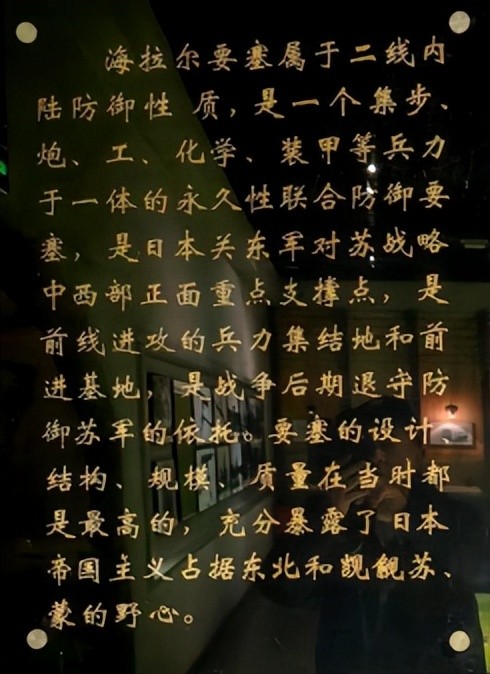 海拉尔要塞属于二线内
陆防御性 质，是一个集步、
炮、工、化学、装甲等兵力
于一体的永久性联合防御要
塞，是日本关东军对苏战略
中西部正面重点支撑点，是
前线进攻的兵力集结地和前
进基地，是战争后期退守防
御苏军的依托。要塞的设计
结构、规模、质量在当时都
是最高的，充分暴露了日本
帝国主义占据东北和觊觎苏、
蒙的野心。